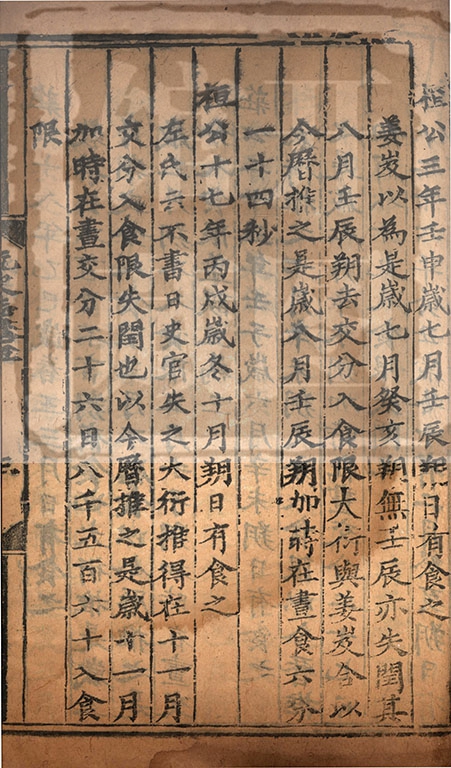 桓公三年壬申歲七月壬辰朔日有食之
姜岌以為是歲七月癸亥朔無壬辰亦失閏其
八月壬辰朔去交分入食限大衍與姜岌合以
今曆推之是歲八月壬辰朔加時在晝食六分
一十四秒
桓公十七年丙戌歲冬十月朔日有食之
左氏云不書日史官失之大衍推得在十一月
交分入食限失閏也以今曆推之是歲十一月
加時在晝交分二十六日八千五百六十入食
限